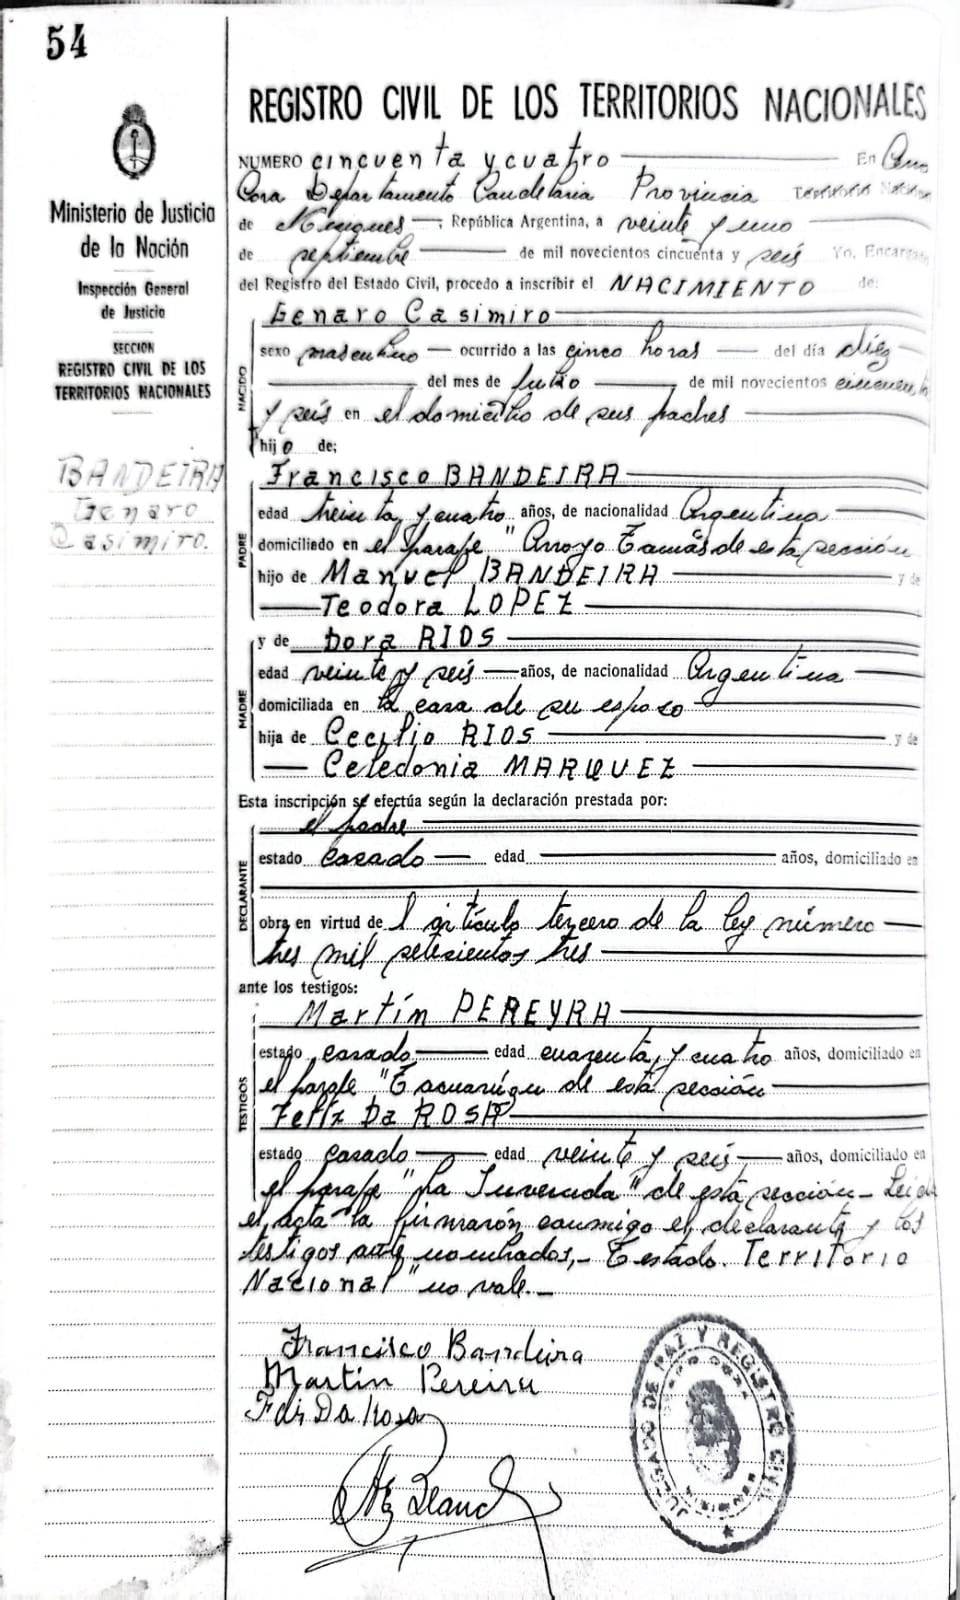 54
REGISTRO CIVIL DE LOS TERRITORIOS NACIONALES
Ministerio de Justicia
de la Nación
Inspección General
de Justicia
SECCION
REGISTRO CIVIL DE LOS
TERRITORIOS NACIONALES
BANDEIRA
Genaro
Casimiro.
NUMERO cincuenta y cuatro En Cerro
Cora Departamento Candelaria Provincia
de Misiones, República Argentina, a veinte y uno
de septiembre de mil novecientos cincuenta y seis Yo, Encargado
del Registro del Estado Civil, procedo a inscribir el NACIMIENTO de:
NACIDO
Genaro Casimiro
sexo masculino ocurrido a las cinco horas del día diez
del mes de Julio de mil novecientos cincuenta
y seis en el domicilio de sus padres
hijo de;
PADRE
Francisco BANDEIRA
edad treinta y cuatro años, de nacionalidad Argentina
domiciliado en el paraje "Arroyo Tomás de esta sección
hijo de Manuel BANDEIRA y de
Teodora LOPEZ
MADRE
y de Dora RIOS
edad veinte y seis años, de nacionalidad Argentina
domiciliada en la casa de su esposo
hija de Cecilio RIOS y de
Celedonia MARQUEZ
Esta inscripción se efectúa según la declaración prestada por:
DECLARANTE
el padre
estado casado edad años, domiciliado en
obra en virtud del artículo tercero de la ley número
tres mil setesientos tres
ante los testigos:
TESTIGOS
Martín PEREYRA
estado casado edad cuarenta y cuatro años, domiciliado en
el paraje de está sección
Feliz Da ROSA
estado casado edad veinte y seis años, domiciliado en
el paraje "La Invernada" de está sección- Leida
el acta la firmarón conmigo el declarante y los
testigos ante nombrados,- Testado. Territorio
Nacional" no vale.-
Francisco Bandeira
Martin Pereira
Da Rosa
JUZGADO DE PAZ Y REGISTRO CIVIL